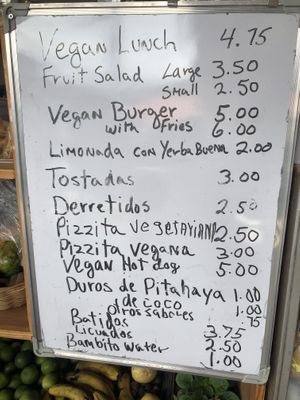 Vegan Lunch 4.75
Fruit Salad Large 3.50
Small 2.50
Vegan Burger 5.00
with Fries 6.00
Limonada con Yerba Buena 2.00
Tostadas 3.00
Derretidos 2.50
Pizzita Vegetariana 2.50
Pizzita vegana 3.00
Vegan Hot dog 5.00
Duros de Pitahaya 1.00
de coco 1.00
otros sabores .75
Batidos 3.75
Licuados 2.50
Bambito water 1.00